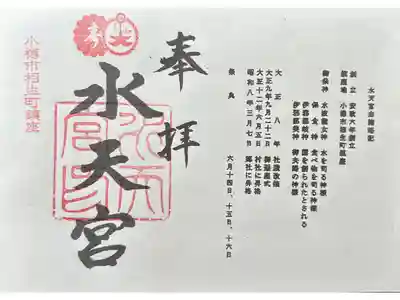 水天宮由緒略記
創立 安政六年創立
鎮座地 小樽市相生町鎮座
御祭神 水を司る神様
保食神 食べ物を司る神様
伊邪那岐神 国を創られたとされる
伊邪那美神 御夫婦の神様
大正八年 社殿改築
大正九年九月二十二日 御遷座式
大正十二年六月五日 村社に昇格
昭和八年三月七日 郷社に昇格
祭典 六月十四日、十五日、十六日
奉拝
水天宮
水天宮印
小樽市相生町鎮座